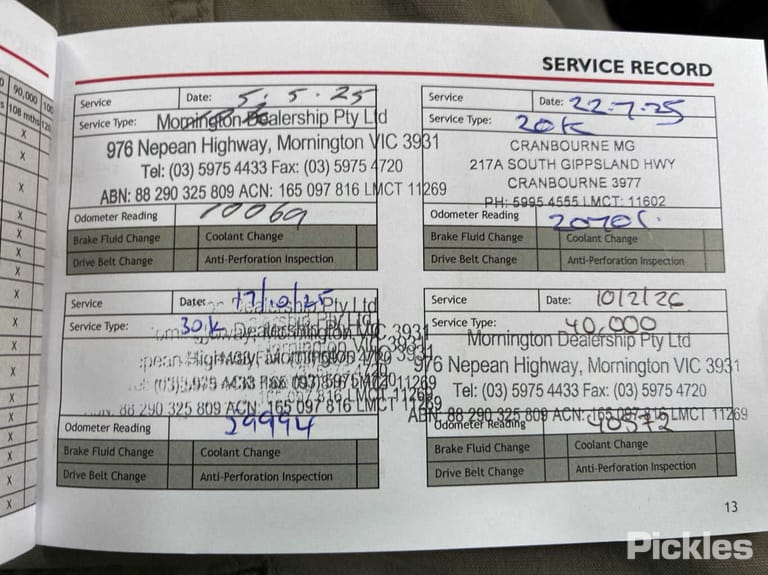 SERVICE RECORD
90,000 100
108 mths 120
Service Date: 5. 5. 25
Service Type:
Mornington Dealership Pty Ltd
976 Nepean Highway, Mornington VIC 3931
Tel: (03) 5975 4433 Fax: (03) 5975 4720
ABN: 88 290 325 809 ACN: 165 097 816 LMCT 11269
Odometer Reading 10069
Brake Fluid Change Coolant Change
Drive Belt Change Anti-Perforation Inspection
Service Date: 22-7-25
Service Type: 20K
CRANBOURNE MG
217A SOUTH GIPPSLAND HWY
CRANBOURNE 3977
PH: 5995 4555 LMCT: 11602
Odometer Reading
Brake Fluid Change Coolant Change
Drive Belt Change Anti-Perforation Inspection
Service Date: 17/10/25
Service Type: 30K
Dealership Pty Ltd
Highway, Mornington VIC 3931
88 290 325 809 ACN: 165 097 816 LMCT 11269
Odometer Reading 29994
Brake Fluid Change Coolant Change
Drive Belt Change Anti-Perforation Inspection
Service Date: 10/2/26
Service Type: 40,000
Mornington Dealership Pty Ltd
976 Nepean Highway, Mornington VIC 3931
Tel: (03) 5975 4433 Fax: (03) 5975 4720
ABN: 88 290 325 809 ACN: 165 097 816 LMCT 11269
Odometer Reading 40572
Brake Fluid Change Coolant Change
Drive Belt Change Anti-Perforation Inspection
13
Pickles